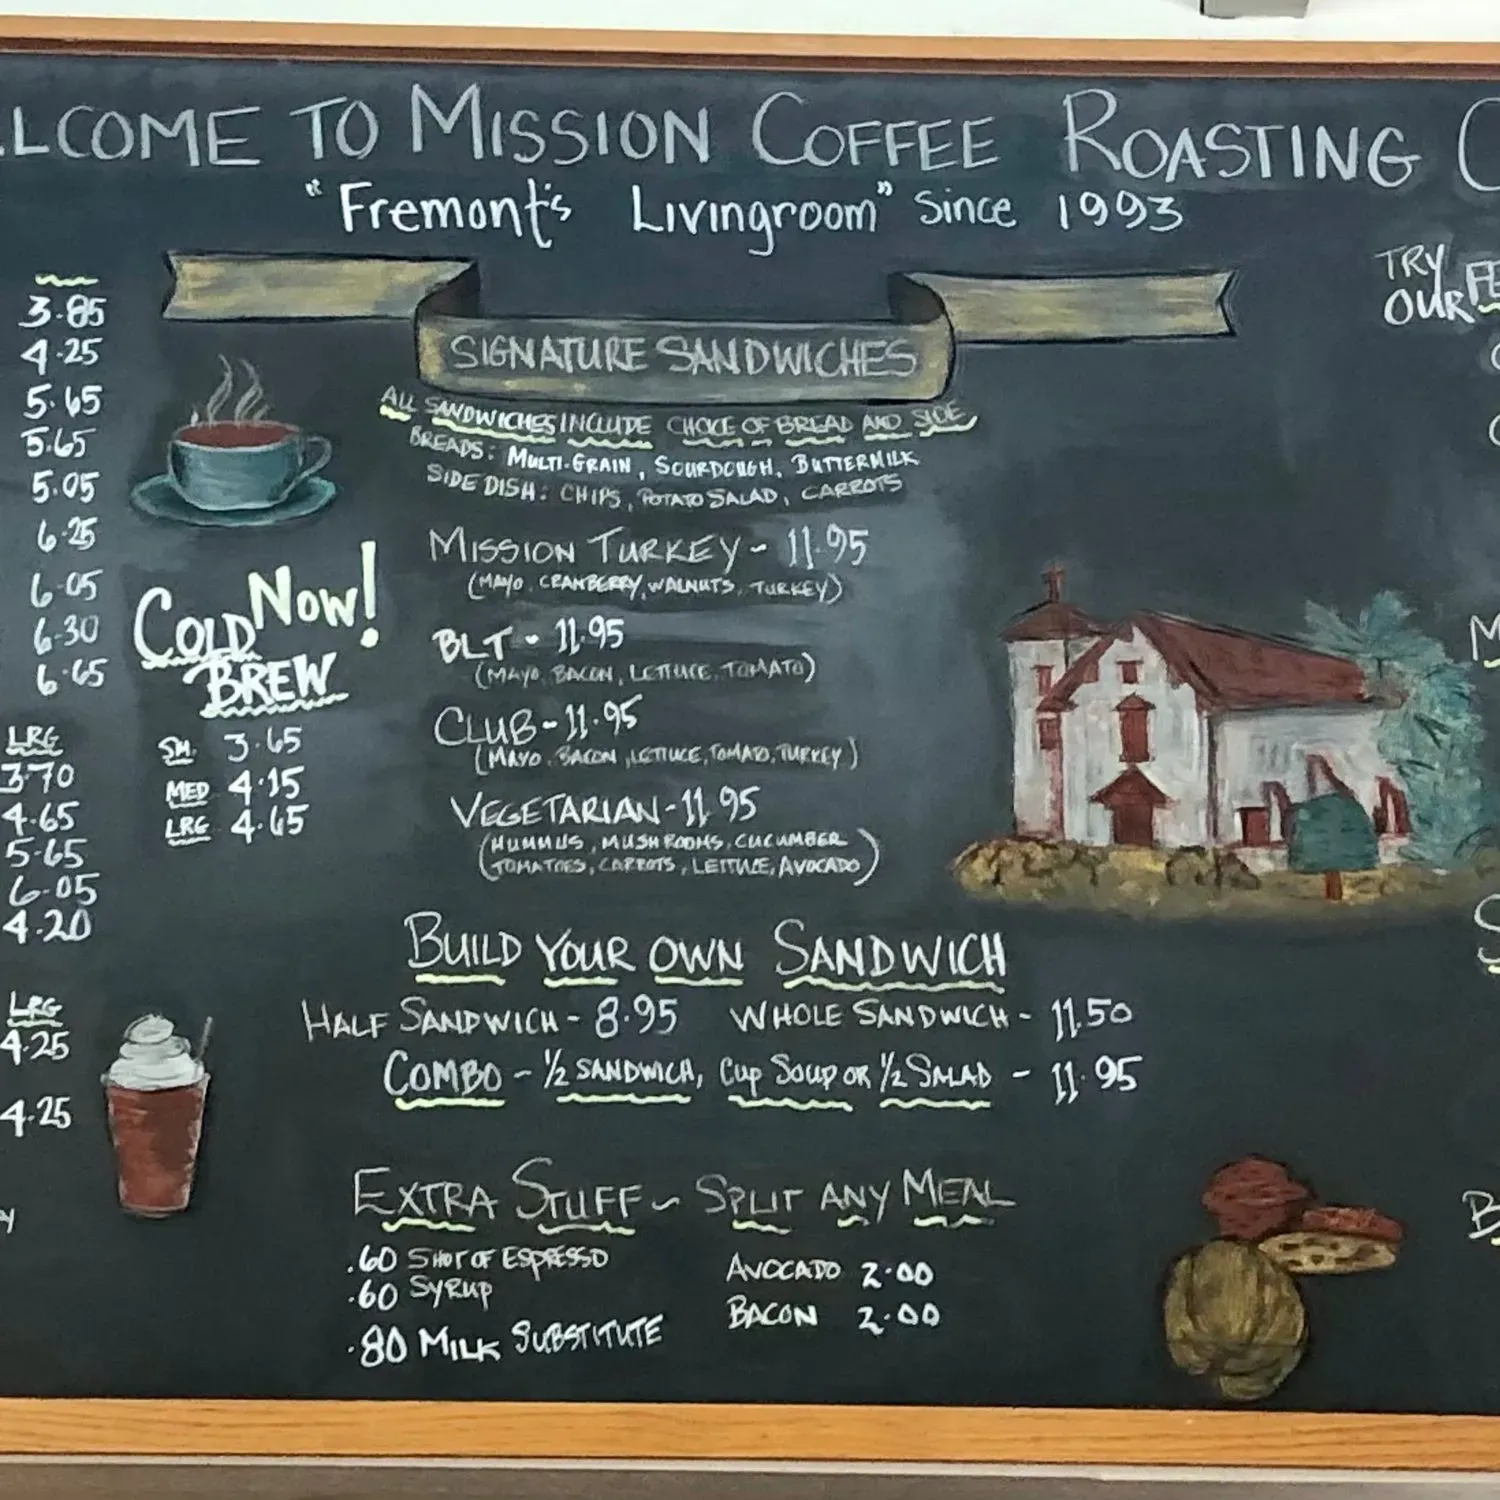 LCOME TO MISSION COFFEE ROASTING C
"Fremont's Livingroom" Since 1993
3.85
4.25
5.65
5.65
5.05
6.25
6.05
6.30
6.65
LRG
3.70
4.65
5.65
6.05
4.20
LRG
4.25
4.25
Y
NOW!
COLD
BREW
SM. 3.65
MED 4.15
LRG 4.65
SIGNATURE SANDWICHES
ALL SANDWICHES INCLUDE CHOICE OF BREAD AND SIDE
BREADS: MULTI-GRAIN, SOURDOUGH, BUTTERMILK
SIDE DISH: CHIPS, POTATO SALAD, CARROTS
MISSION TURKEY - 11.95
(MAYO, CRANBERRY, WALNUTS, TURKEY)
BLT - 11.95
(MAYO, BACON, LETTUCE, TOMATO)
CLUB - 11.95
(MAYO, BACON, LETTUCE, TOMATO, TURKEY)
VEGETARIAN - 11.95
(HUMMUS, MUSHROOMS, CUCUMBER
TOMATOES, CARROTS, LETTUCE, AVOCADO)
BUILD YOUR OWN SANDWICH
HALF SANDWICH - 8.95 WHOLE SANDWICH - 11.50
COMBO - 1/2 SANDWICH, Cup Soup OR 1/2 SALAD - 11.95
EXTRA STUFF ~ SPLIT ANY MEAL
.60 SHOT OF ESPRESSO
.60 SYRUP
.80 MILK SUBSTITUTE
AVOCADO 2.00
BACON 2.00
TRY
OUR FE
M
S
B